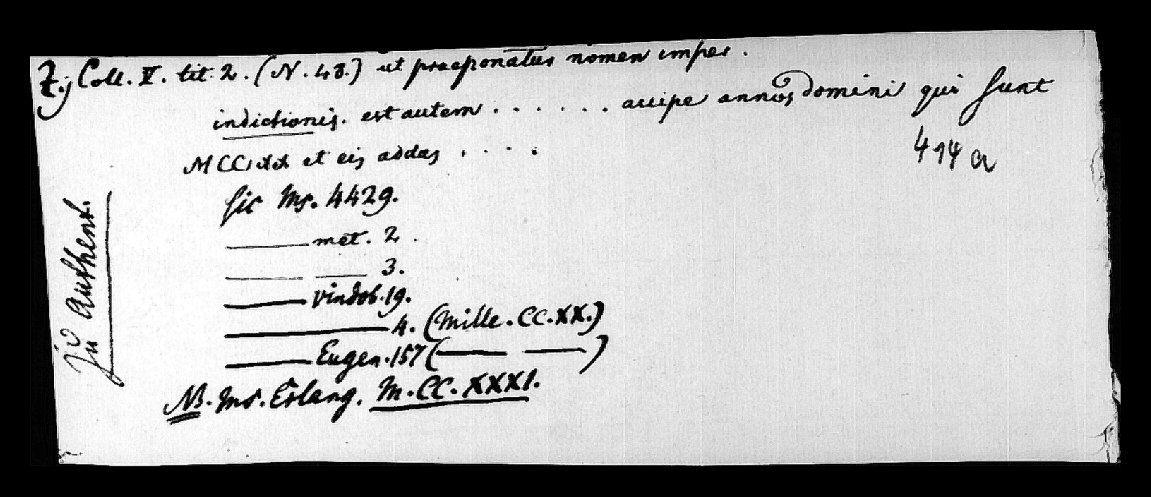 Zu Coll. V. tit. 2. (N. 48.) ut praeponatur nomen imper.
indictionis. est autem . . . . . . accipe annos domini qui sunt
MCCXX et eis addas . . . .
414 a
sic Ms. 4429.
——— met. 2.
——— —— 3.
——— vindob. 19.
——————— 4. (Mille. CC. XX.)
——— Eugen. 157 (—— ——)
NB. Ms. Erlang. M. CC. XXXI.
Zu Authent.